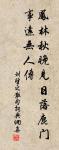 鳳林秋晚見日落鹿門
事遠無人傳